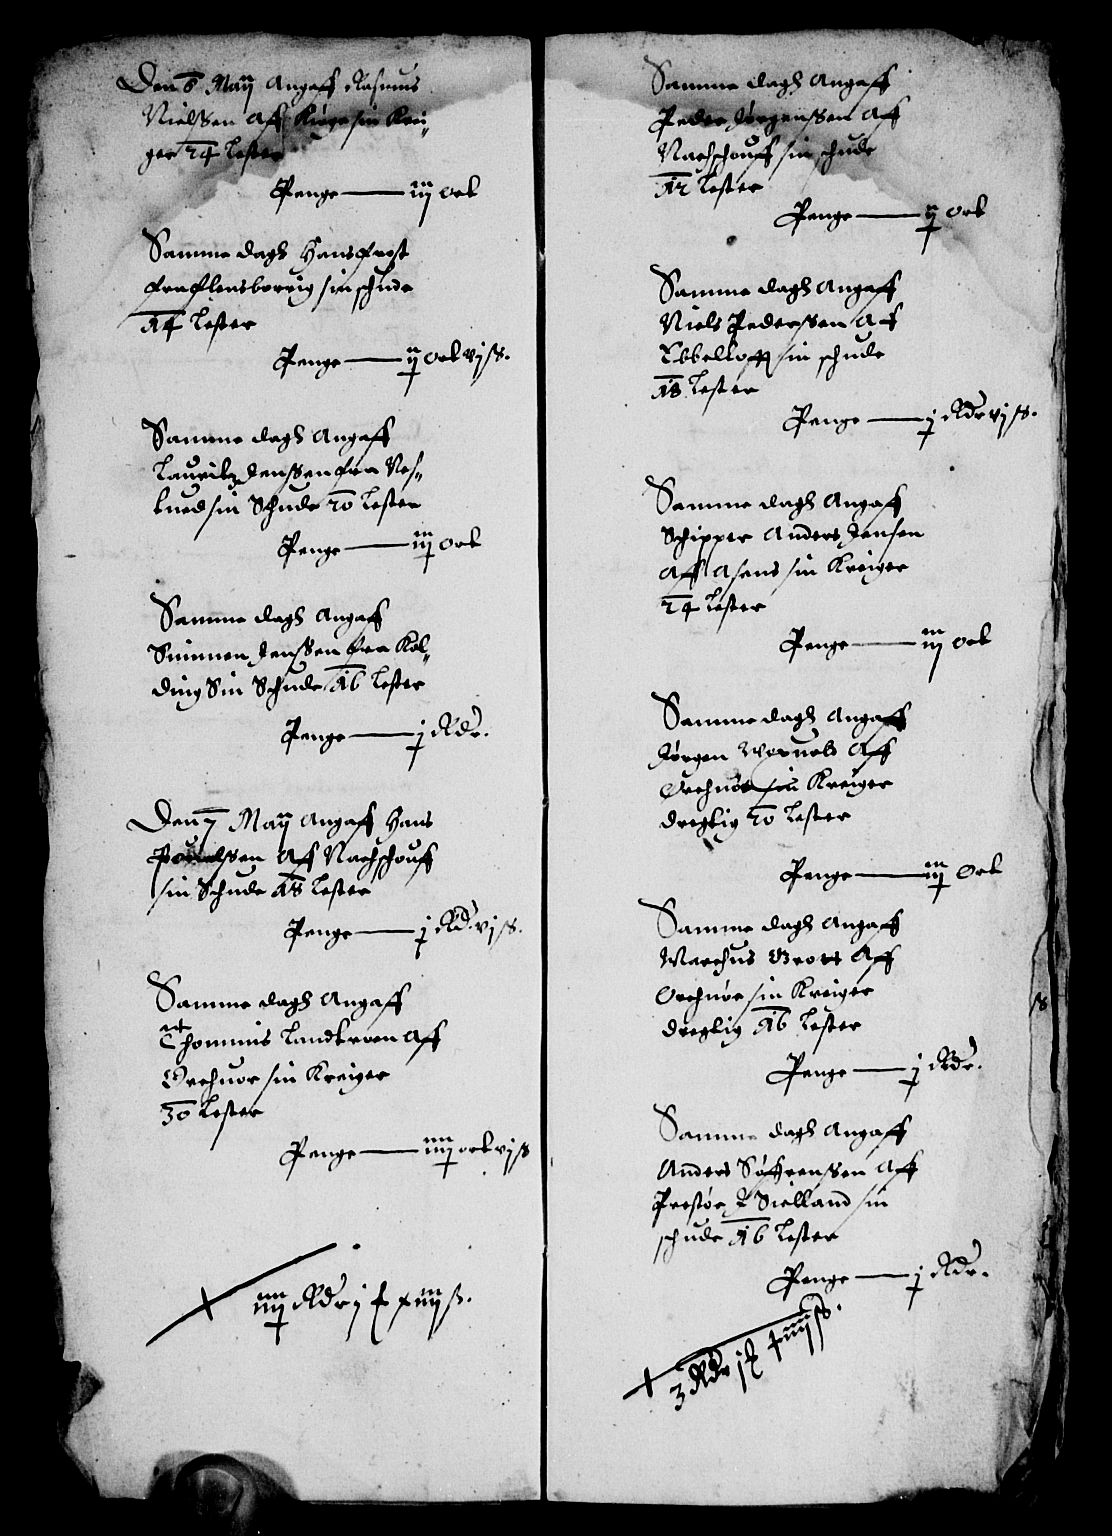 Den 6 Maÿ Angaff Rasmus
Nielssen Aff Kiøge sin Krei-
ger 24 Lester
Penge — iij ort
Samme dagh Hans frost
fra flensborrig sin schude
14 Lester
Penge — ij ort vj ß.
Samme dagh Angaff
Lauritz Jenssen fra Nes-
tued sin Schude 20 Lester
Penge — iij ort
Samme dagh Angaff
Simmen Jenssen fra Kol-
ding Sin Schude 16 Lester
Penge — j Rdr.
Den 7 Maÿ Angaff Hans
Pouelssen Aff Nachschouff
sin Schude 18 Lester
Penge — j Rd. vj ß.
Samme dagh Angaff
Thommis Landkroen Aff
Orehuor sin Kreiger
30 Lester
Penge — iiij ort vj ß
iiij Rdr j ƒ xiij ß.
Samme dagh Angaff
Peder Jørgenssen Aff
Nachschouff sin schude
12 Lester
Penge — ij ort
Samme dagh Angaff
Niels Pederssen Aff
Ebbeltoft sin schude
18 Lester
Penge — j Rdr vj ß.
Samme dagh Angaff
Schipper Anders Jensen
Aff Asens sin Kreiger
24 Lester
Penge — iij ort
Samme dagh Angaff
Jørgen Aff
Orehuor sin Kreiger
dregtig 20 Lester
Penge — iij Ort
Samme dagh Angaff
Marchus Grott Aff
Orehuor sin Kreiger
dregtig 16 Lester
Penge — j Rdr.
Samme dagh Angaff
Anders Søffrenssen Aff
Prestøe J Sielland sin
schude 16 Lester
Penge — j Rdr.
3 Rdr j ƒ xiiij ß.
ß